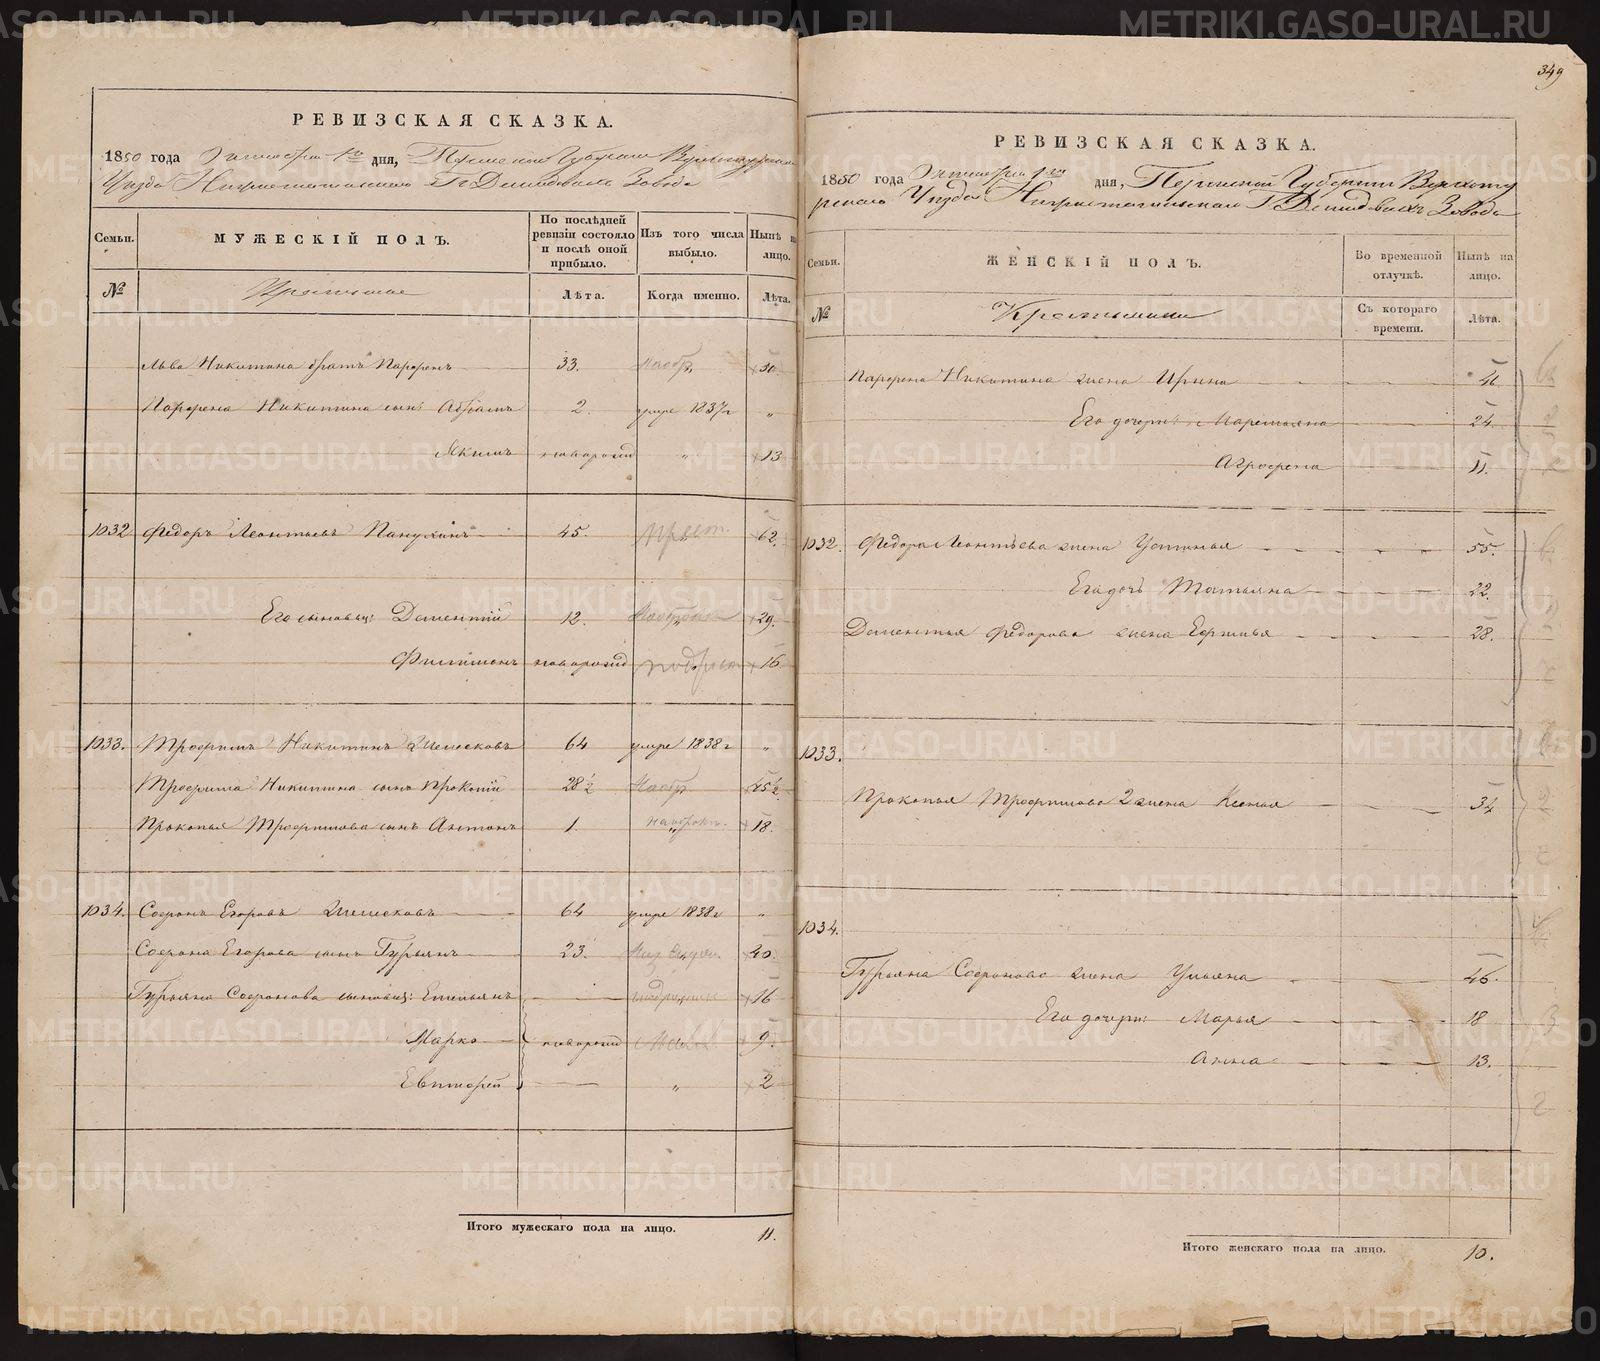 РЕВИЗСКАЯ СКАЗКА.
1850 года Октября 1го дня, Пермской Губернии Верхотурскаго
Уезда Нижнетагильскаго Г. Демидовыхъ Завода
Семьи. МУЖЕСКІЙ ПОЛЪ. По послѣдней ревизіи состояло и послѣ оной прибыло. Изъ того числа выбыло. Нынѣ на лицо.
№ Крестьяне Лѣта. Когда именно. Лѣта.
Льва Никитина братъ Парфенъ 33. 50
Парфена Никитина сынъ Абрамъ 2. умре 1837г „
Якимъ новорожд „ 13
1032 Федоръ Леонтьевъ Панухинъ 45. 62.
Его сыновья: Дементій 12. 29.
Филимонъ новорожд 16
1033. Трофимъ Никитинъ 64 умре 1838г „
Трофима Никитина сынъ Прокопій 28½ 45½
Прокопья Трофимова сынъ Антонъ 1. 18.
1034. Софронъ Егоровъ 64 умре 1838г „
Софрона Егорова сынъ Гурьянъ 23. 40.
Гурьяна Софронова сыновья: Емельянъ 16
Марко новорожд 9.
Евтифей „ 2
Итого мужескаго пола на лицо. 11.
349
РЕВИЗСКАЯ СКАЗКА.
1850 года Октября 1го дня, Пермской Губернии Верхоту
рскаго Уезда Нижнетагильскаго Г. Демидовыхъ Завода
Семьи. ЖЕНСКІЙ ПОЛЪ. Во временной отлучкѣ. Нынѣ на лицо.
№ Крестьянки Съ котораго времени. Лѣта.
Парфена Никитина жена Ирина 46
Его дочери: Маремьяна 24.
Агрофена 11.
1032. Федора Леонтьева жена Устинья 55.
Его дочь Татьяна 22.
Дементья Федорова жена 28.
1033.
Прокопья Трофимова 2 жена Ксенья 34
1034.
Гурьяна Софронова жена Ульяна 46.
Его дочери: Марья 18
Анна 13.
Итого женскаго пола на лицо. 10.
METRIKI.GASO-URAL.RU